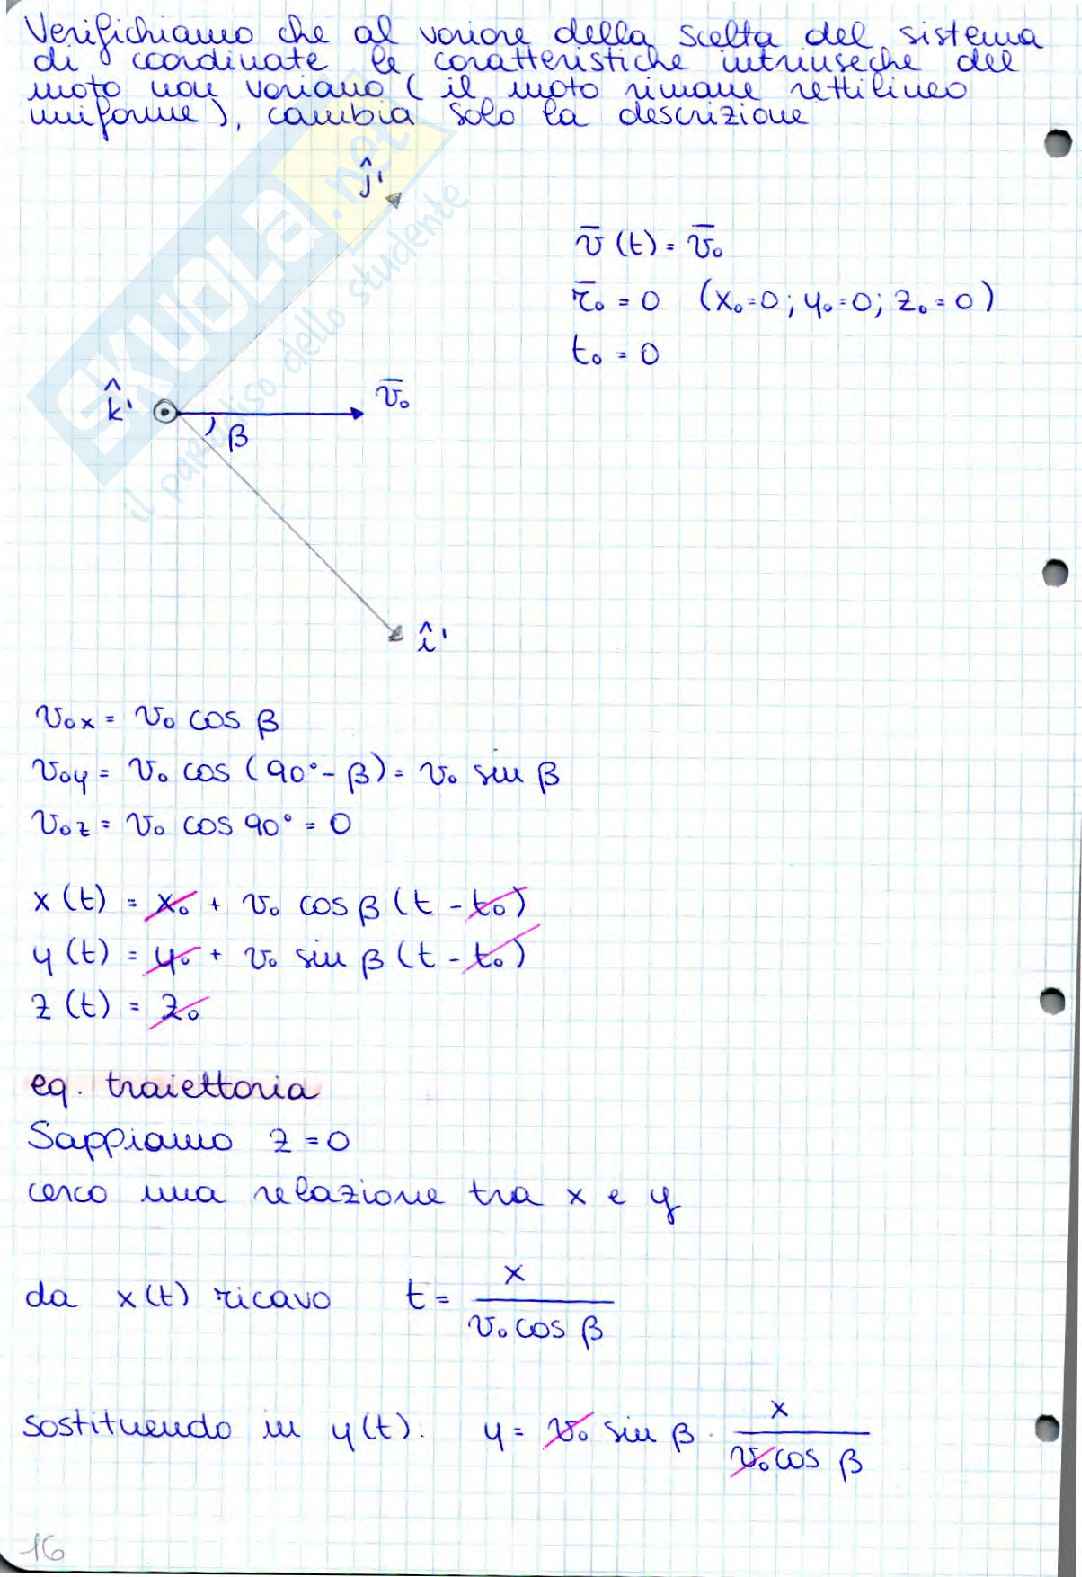 Verifichiamo che al variare della scelta del sistema
di coordinate le caratteristiche intrinseche del
moto non variano (il moto rimane rettilineo
uniforme), cambia solo la descrizione
ĵ'
v̄(t) = v̄₀
r̄₀ = 0 (x₀=0; y₀=0; z₀=0)
t₀ = 0
k̂' v̄₀
β
î'
v₀x = v₀ cos β
v₀y = v₀ cos (90°- β) = v₀ sin β
v₀z = v₀ cos 90° = 0
x(t) = x₀ + v₀ cos β (t - t₀)
y(t) = y₀ + v₀ sin β (t - t₀)
z(t) = z₀
eq. traiettoria
Sappiamo z = 0
cerco una relazione tra x e y
da x(t) ricavo t = x / v₀ cos β
sostituendo in y(t). y = v₀ sin β · x / v₀ cos β
16
SKUOLA.net
il paradiso dello studente